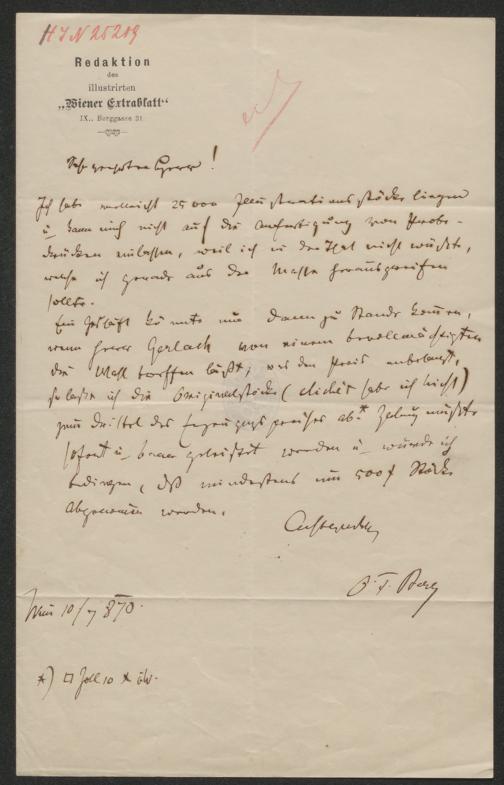 HIN 25219
Redaktion
des
illustrirten
„Wiener Extrablatt“
IX., Berggasse 31
Sehr geehrter Herr!
Ich habe vielleicht 25000 Illustrationsstöcke liegen
u. kann mich nicht auf die Anfertigung von Probe-
drucken einlassen, weil ich in der That nicht wüßte,
welche ich gerade aus der Masse herausgreifen
sollte.
Ein Geschäft könnte nur dann zu Stande kommen,
wenn Herr Gerlach von einem bevollmächtigten
die Wahl treffen läßt; was den Preis anbelangt,
so lasse ich die Originalstöcke (Clichés habe ich nicht)
zum drittel des Erzeugungspreises ab*) Zahlung müßte
sofort u. baar geleistet werden u. würde ich
bedingen, daß mindestens um 500 f Stöcke
abgenommen werden.
Achtungsvoll
O. F. Berg
Wien 10/7 870.
*) □ Zoll 10 x öW.